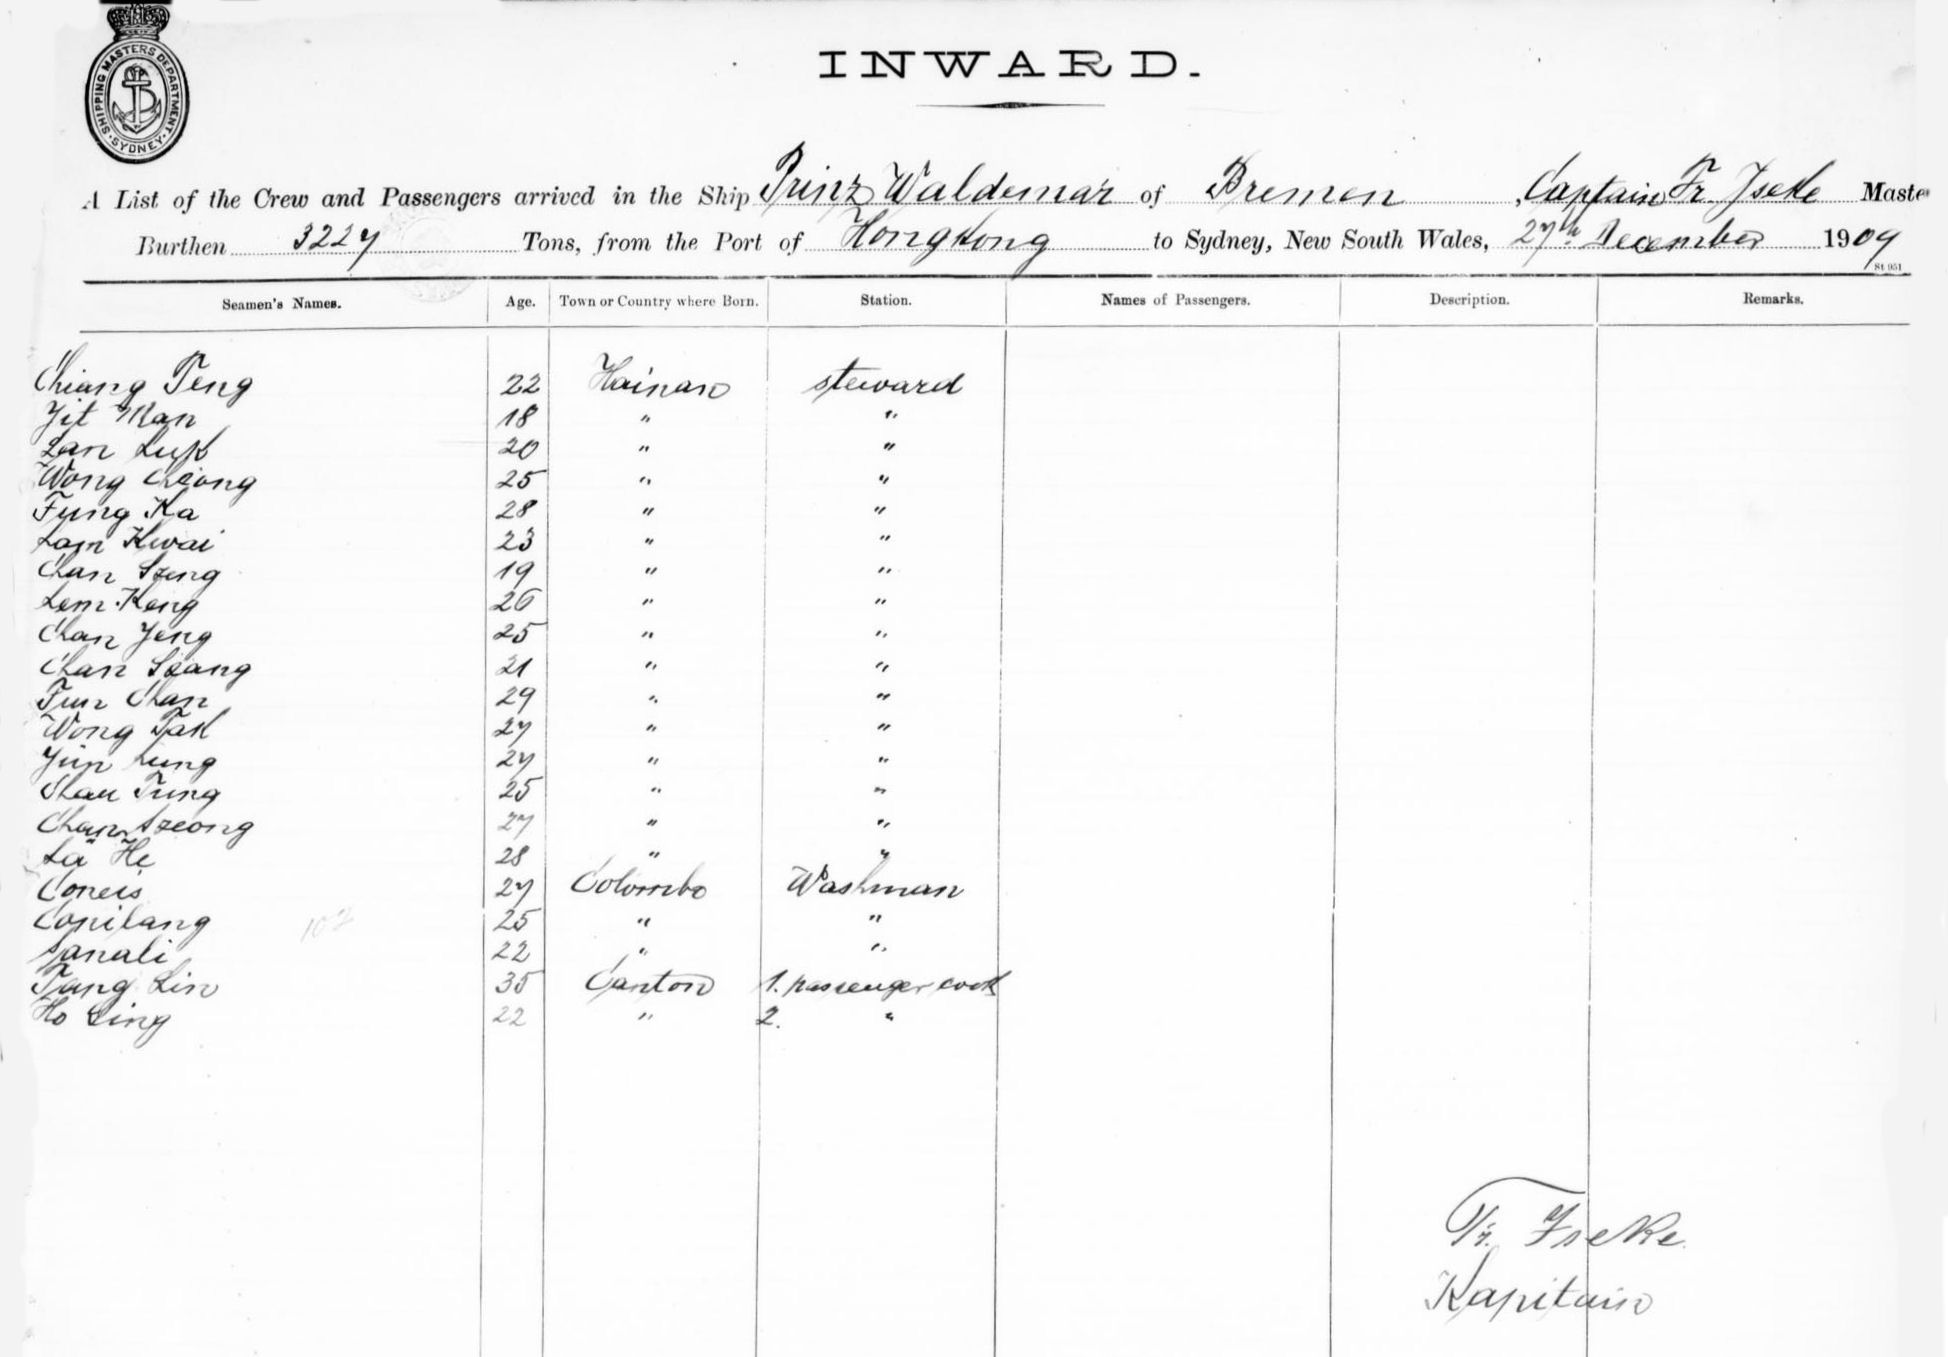 SHIPPING MASTERS DEPARTMENT. SYDNEY.
INWARD.
A List of the Crew and Passengers arrived in the Ship Prinz Waldemar of Bremen, Captain Fr. Iseke Maste
Burthen 3227 Tons, from the Port of Hongkong to Sydney, New South Wales, 27th December 1909
St 951
Seamen's Names. Age. Town or Country where Born. Station. Names of Passengers. Description. Remarks.
Chiang Teng 22 Hainan steward
Jit Man 18 " "
Lan Luk 20 " "
Wong Cheong 25 " "
Fung Ka 28 " "
Lam Kwai 23 " "
Chan Szeng 19 " "
Lem Keng 26 " "
Chan Jeng 25 " "
Chan Szang 21 " "
Fun Chan 29 " "
Wong Tak 27 " "
Jün Lung 27 " "
Chau Tung 25 " "
Chan Szeong 27 " "
La He 28 " "
Coneis 27 Colombo Washman
Conilang 25 " "
Sanali 22 " "
Tang Lin 35 Canton 1. passenger cook
Ho Sing 22 " 2. "
Fr. Iseke
Kapitain